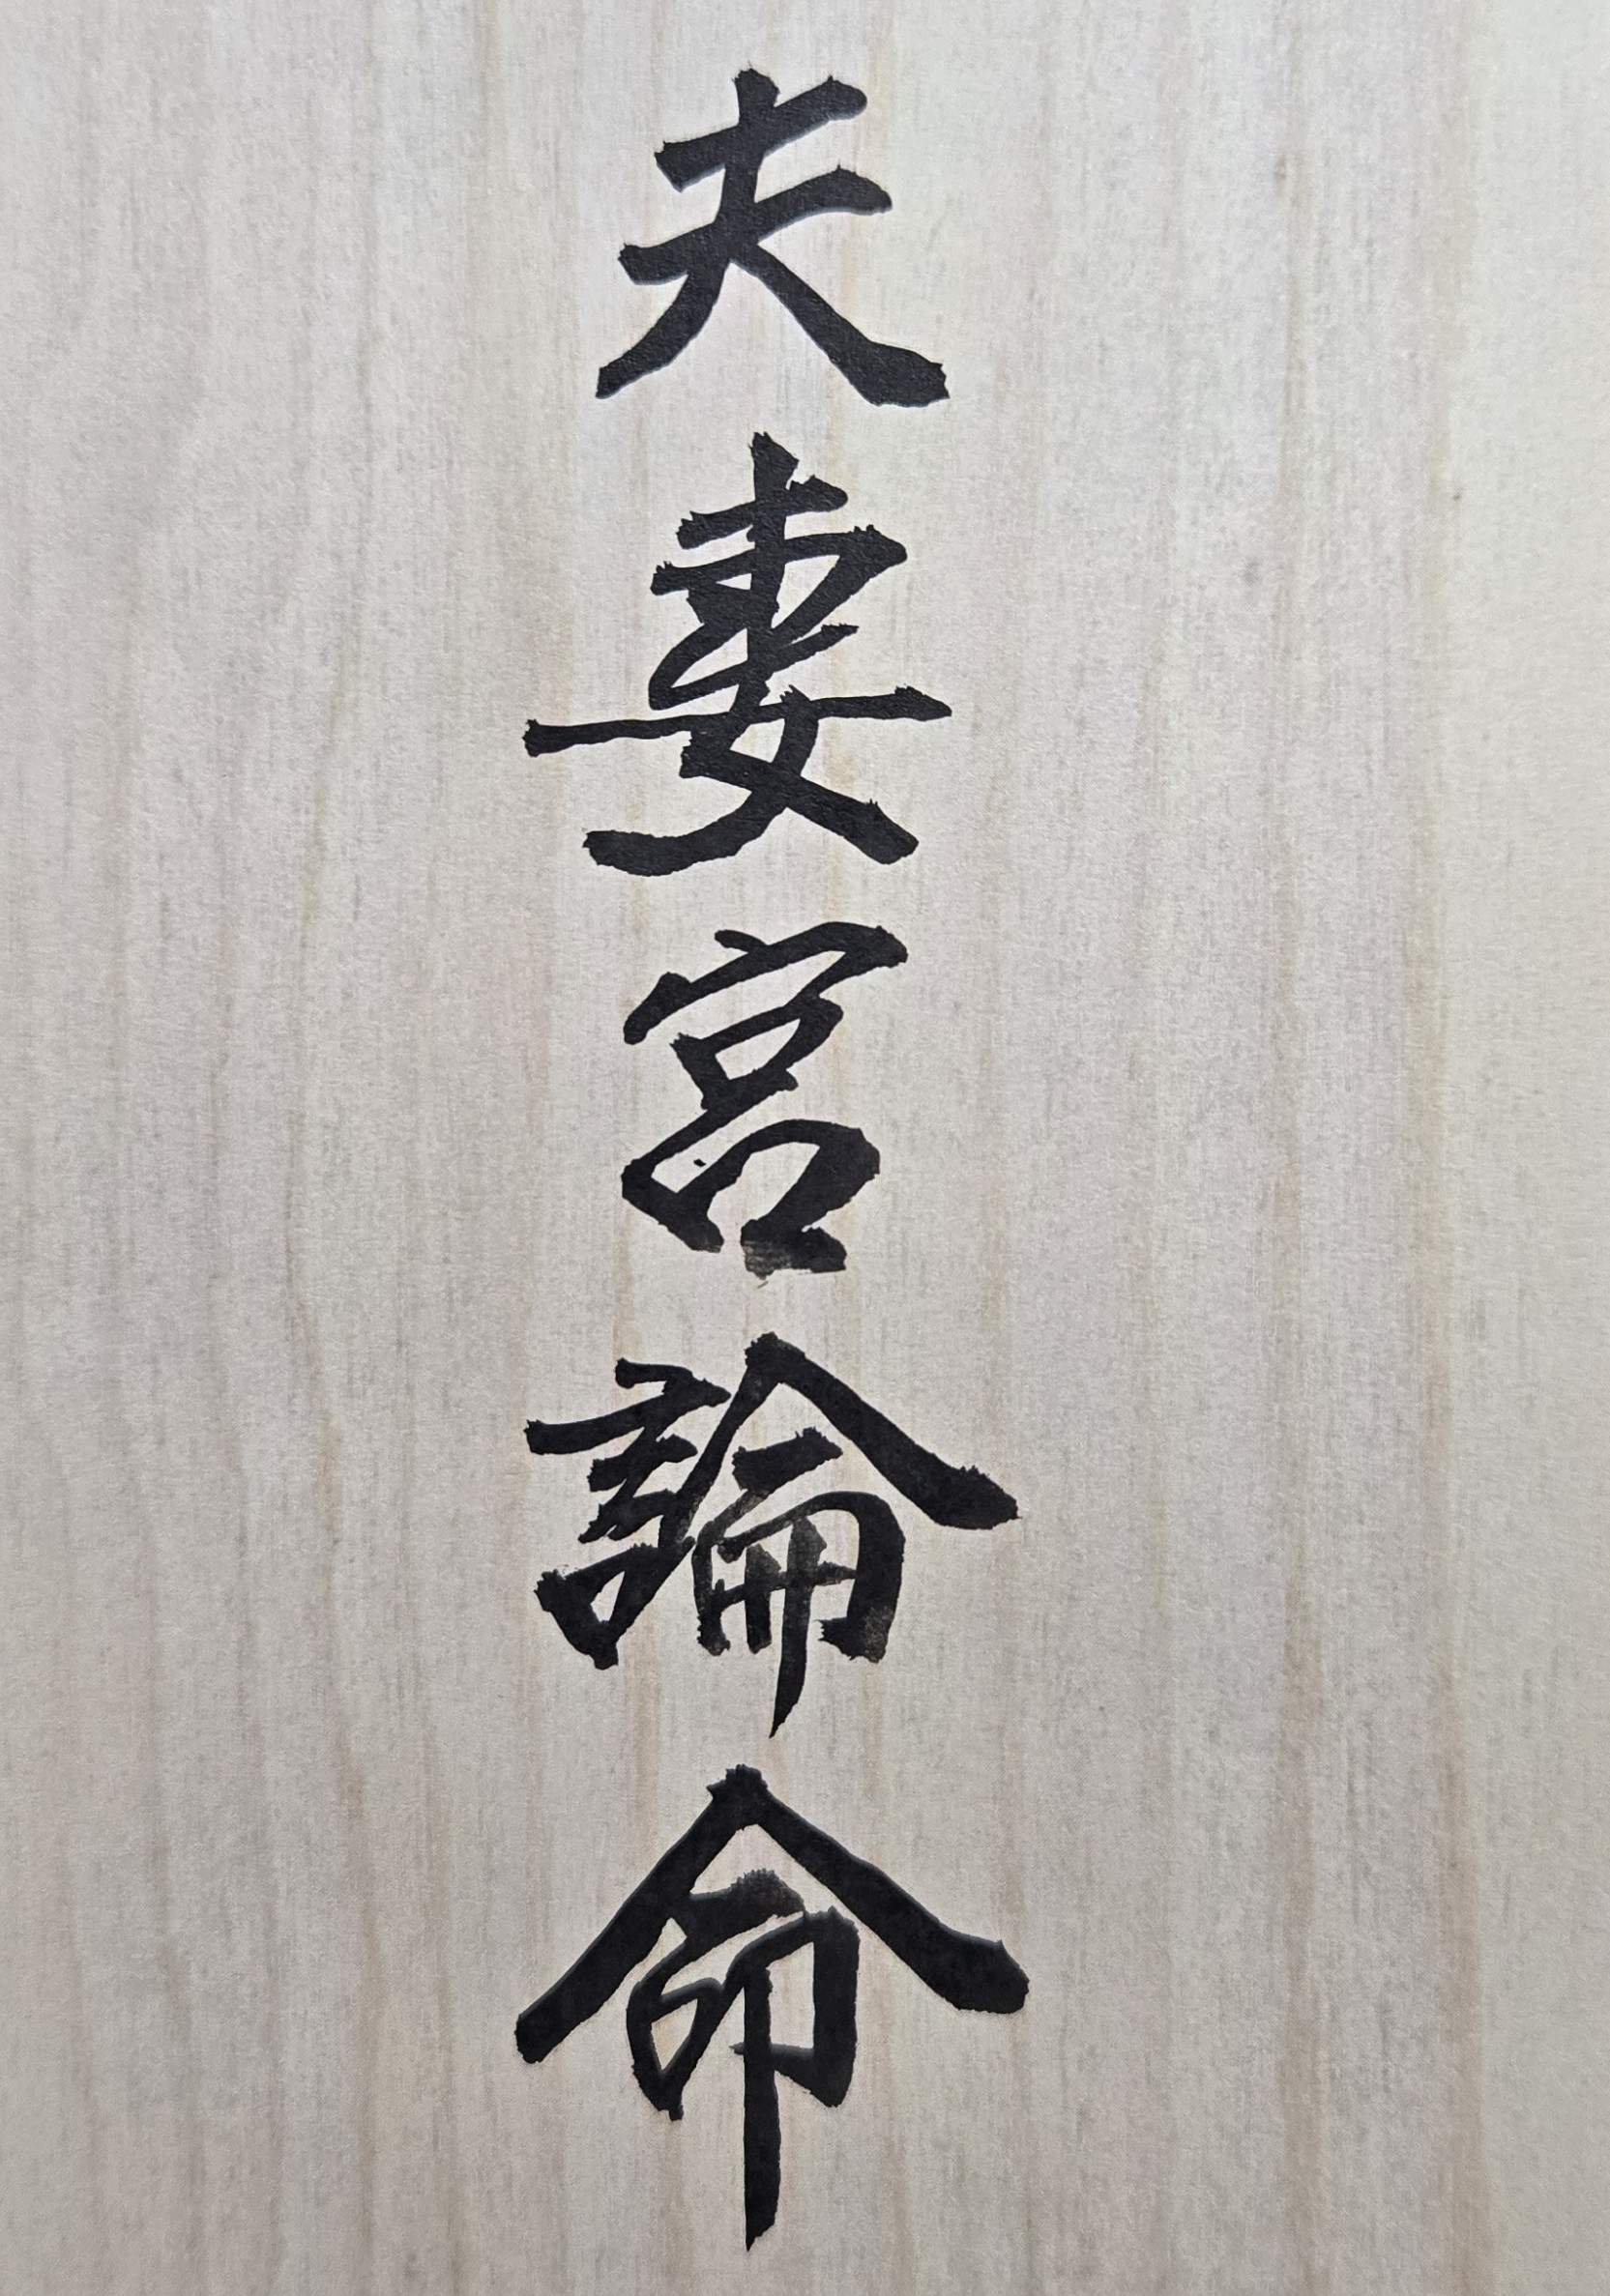 夫妻宮論命